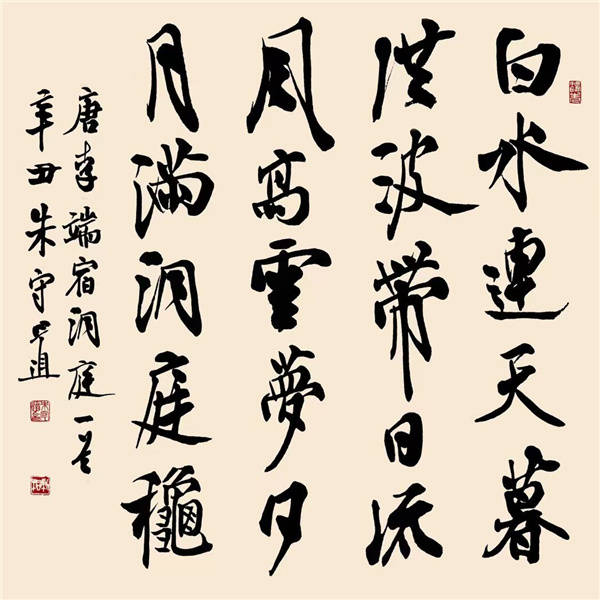 白水連天暮
洪波帶日流
風高雲夢夕
月滿洞庭龝
唐李端宿洞庭一首
辛丑朱守道